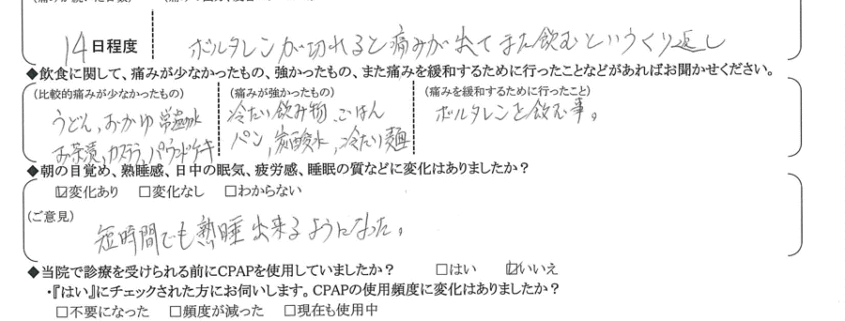 14日程度 ボルタレンが切れると痛みが出てまた飲むというくり返し
◆飲食に関して、痛みが少なかったもの、強かったもの、また痛みを緩和するために行ったことなどがあればお聞かせください。
(比較的痛みが少なかったもの) (痛みが強かったもの) (痛みを緩和するために行ったこと)
うどん,おかゆ 常温水 冷たい飲み物、ごはん ボルタレンを飲む事。
お茶漬,カステラ,パウンドケーキ パン,炭酸水,冷たい麺
◆朝の目覚め、熟睡感、日中の眠気、疲労感、睡眠の質などに変化はありましたか?
☑変化あり □変化なし □わからない
(ご意見)
短時間でも熟睡出来るようになった。
◆当院で診療を受けられる前にCPAPを使用していましたか? □はい ☑いいえ
・『はい』にチェックされた方にお伺いします。CPAPの使用頻度に変化はありましたか?
□不要になった □頻度が減った □現在も使用中